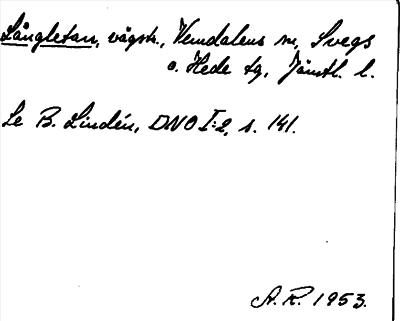 Långletan, vägstr., Vemdalens sn, Svegs
o. Hede tg, Jämtl. l.
Se B. Lindén, DNO I:2, s. 141.
A.R. 1953.